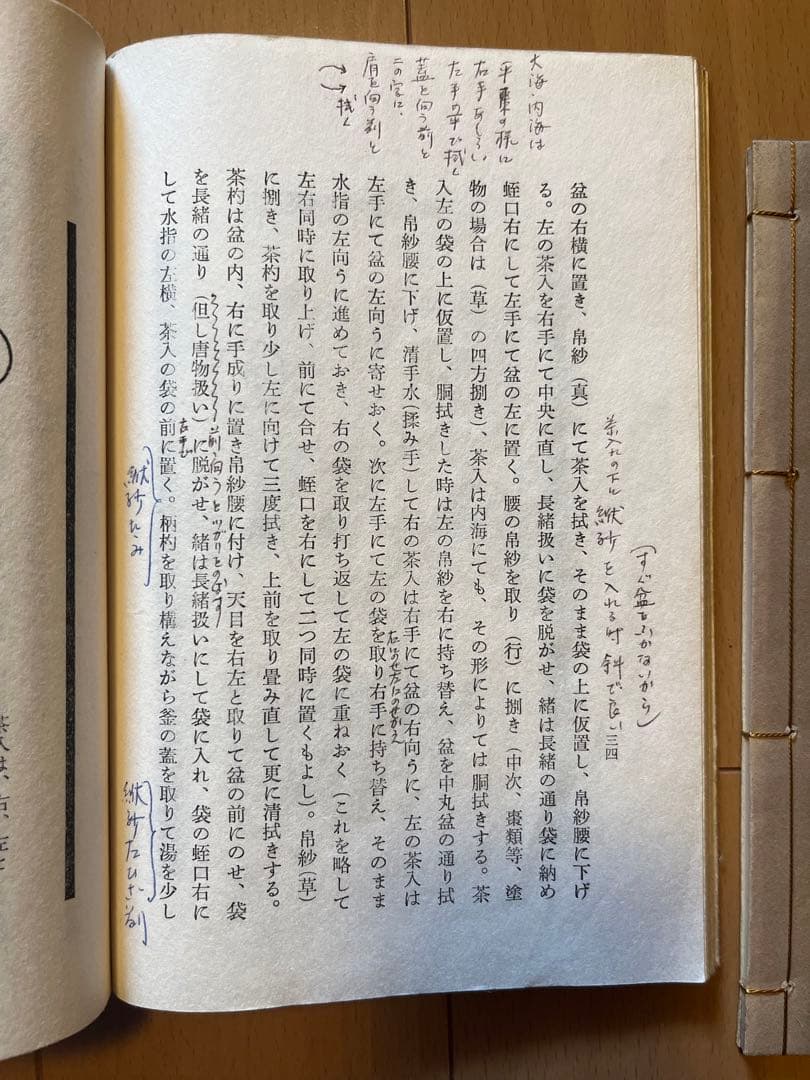 大海・内海は
平棗の様に
右手あしらい
左手の平で拭く
蓋を向う前と
二の字に、
肩を向う前と
拭く
茶入れの下に紙紗を入れる時斜で良い
(すぐ盆をふかないから)
三四
盆の右横に置き、帛紗(真)にて茶入を拭き、そのまま袋の上に仮置し、帛紗腰に下げ
る。左の茶入を右手にて中央に直し、長緒扱いに袋を脱がせ、緒は長緒の通り袋に納め
蛭口右にして左手にて盆の左に置く。腰の帛紗を取り(行)に捌き(中次、棗類等、塗
物の場合は(草)の四方捌き)、茶入は内海にても、その形によりては胴拭きする。茶
入左の袋の上に仮置し、胴拭きした時は左の帛紗を右に持ち替え、盆を中丸盆の通り拭
き、帛紗腰に下げ、清手水(揉み手)して右の茶入は右手にて盆の右向うに、左の茶入は
左手にて盆の左向うに寄せおく。次に左手にて左の袋を取り右手に持ち替え、そのまま
右にのせ左にのせかえ
水指の左向うに進めておき、右の袋を取り打ち返して左の袋に重ねおく(これを略して
左右同時に取り上げ、前にて合せ、蛭口を右にして二つ同時に置くもよし)。帛紗(草)
に捌き、茶杓を取り少し左に向けて三度拭き、上前を取り畳み直して更に清拭きする。
茶杓は盆の内、右に手成りに置き帛紗腰に付け、天目を右左と取りて盆の前にのせ、袋
を長緒の通り(但し唐物扱い)に脱がせ、緒は長緒扱いにして袋に入れ、袋の蛭口右に
前、向うとツガリとのばす
右手で
して水指の左横、茶入の袋の前に置く。柄杓を取り構えながら釜の蓋を取りて湯を少し